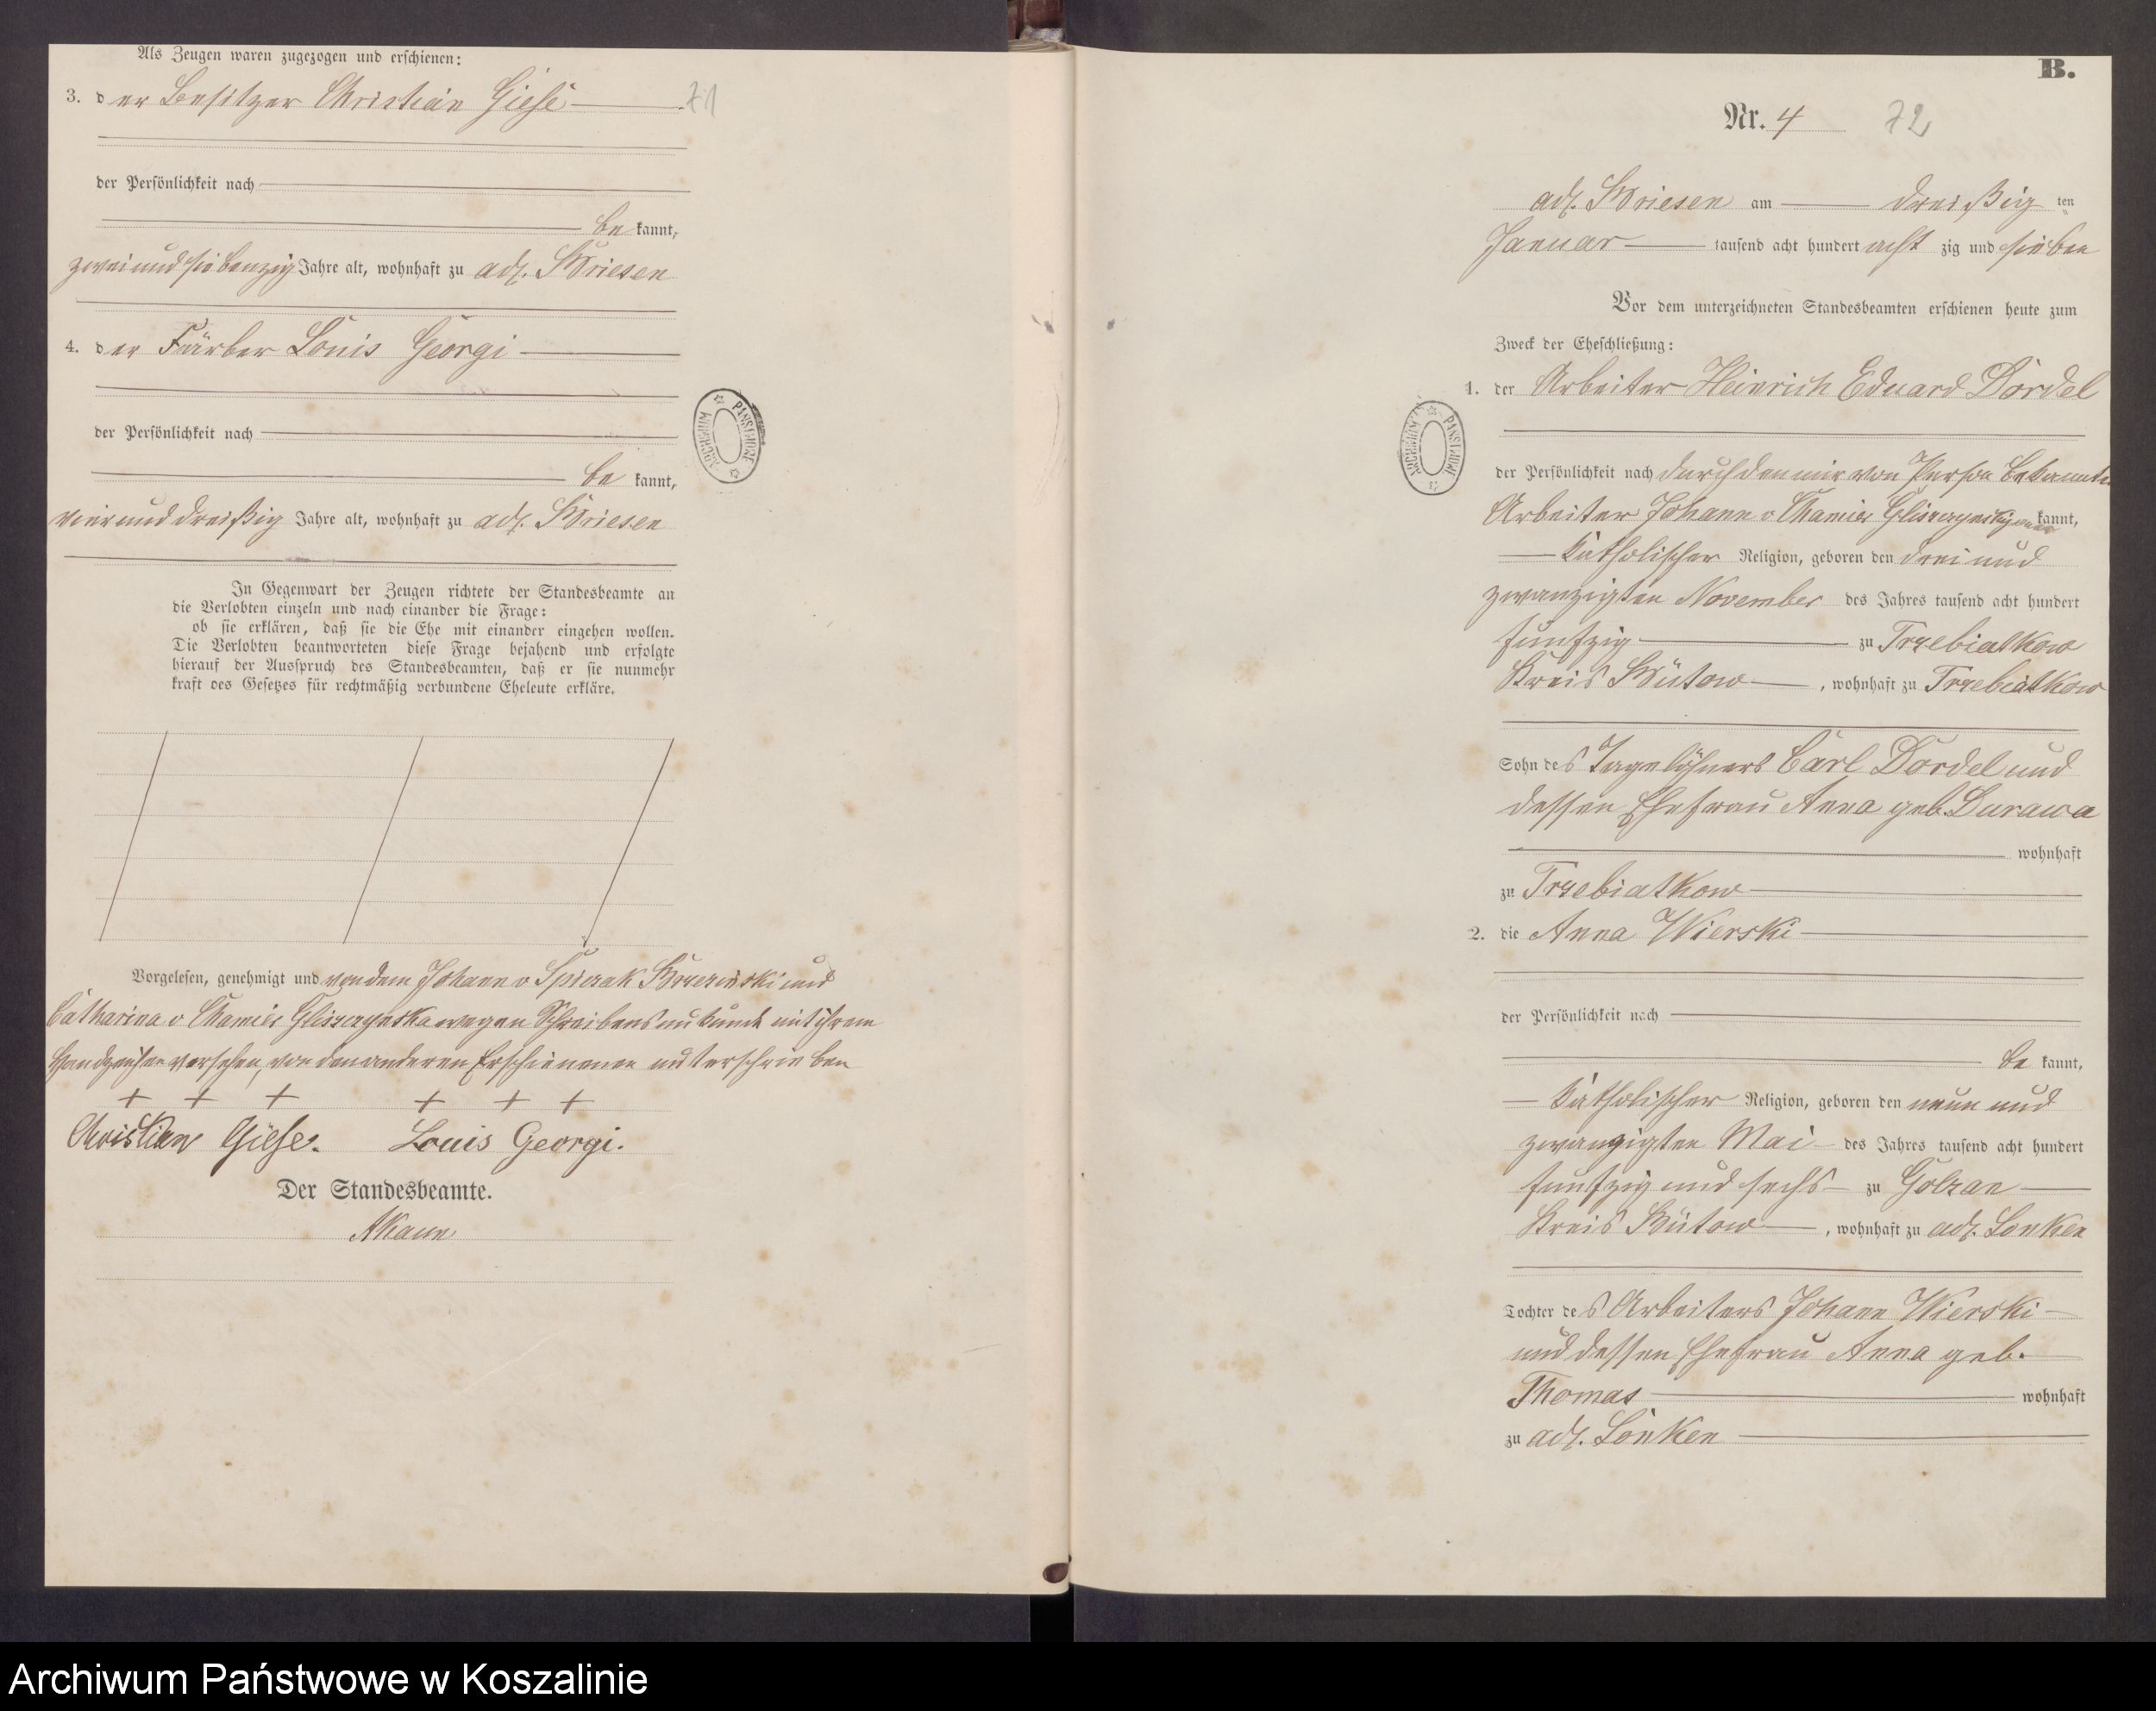 Als Zeugen waren zugezogen und erschienen:
3. der Besitzer Christian Giese 71
der Persönlichkeit nach
be kannt,
zwei und siebenzig Jahre alt, wohnhaft zu adl. Briesen
4. der Färber Louis Georgi
der Persönlichkeit nach
be kannt,
vier und dreißig Jahre alt, wohnhaft zu adl. Briesen
In Gegenwart der Zeugen richtete der Standesbeamte an
die Verlobten einzeln und nach einander die Frage:
ob sie erklären, daß sie die Ehe mit einander eingehen wollen.
Die Verlobten beantworteten diese Frage bejahend und erfolgte
hierauf der Ausspruch des Standesbeamten, daß er sie nunmehr
kraft des Gesetzes für rechtmäßig verbundene Eheleute erkläre.
Vorgelesen, genehmigt und von dem Johann v Spiczak Brzezinski und
Catharina v Chamier Gliszczynska wegen Schreibensunkunde mit ihrem
Handzeichen versehen, von den anderen Erschienenen unterschrieben
+ + + + + +
Christian Giese. Louis Georgi.
Der Standesbeamte.
ARCHIWUM PAŃSTWOWE
B.
Nr. 4 72
adl. Briesen am dreißig ten
Januar tausend acht hundert acht zig und sieben
Vor dem unterzeichneten Standesbeamten erschienen heute zum
Zweck der Eheschließung:
1. der Arbeiter Heinrich Eduard Dordel
ARCHIWUM PAŃSTWOWE
der Persönlichkeit nach durch den mir von Person bekannten
Arbeiter Johann v Chamier Gliszczynski kannt,
katholischer Religion, geboren den drei und
zwanzigsten November des Jahres tausend acht hundert
funfzig zu Trzebiatkow
Kreis Bütow, wohnhaft zu Trzebiatkow
Sohn des Tagelöhners Carl Dordel und
dessen Ehefrau Anna geb. Durawa
wohnhaft
zu Trzebiatkow
2. die Anna Wierski
der Persönlichkeit nach
be kannt,
katholischer Religion, geboren den neun und
zwanzigsten Mai des Jahres tausend acht hundert
funfzig und sechs zu Golzan
Kreis Bütow, wohnhaft zu adl. Lonken
Tochter des Arbeiters Johann Wierski
und dessen Ehefrau Anna geb.
Thomas wohnhaft
zu adl. Lonken
Archiwum Państwowe w Koszalinie